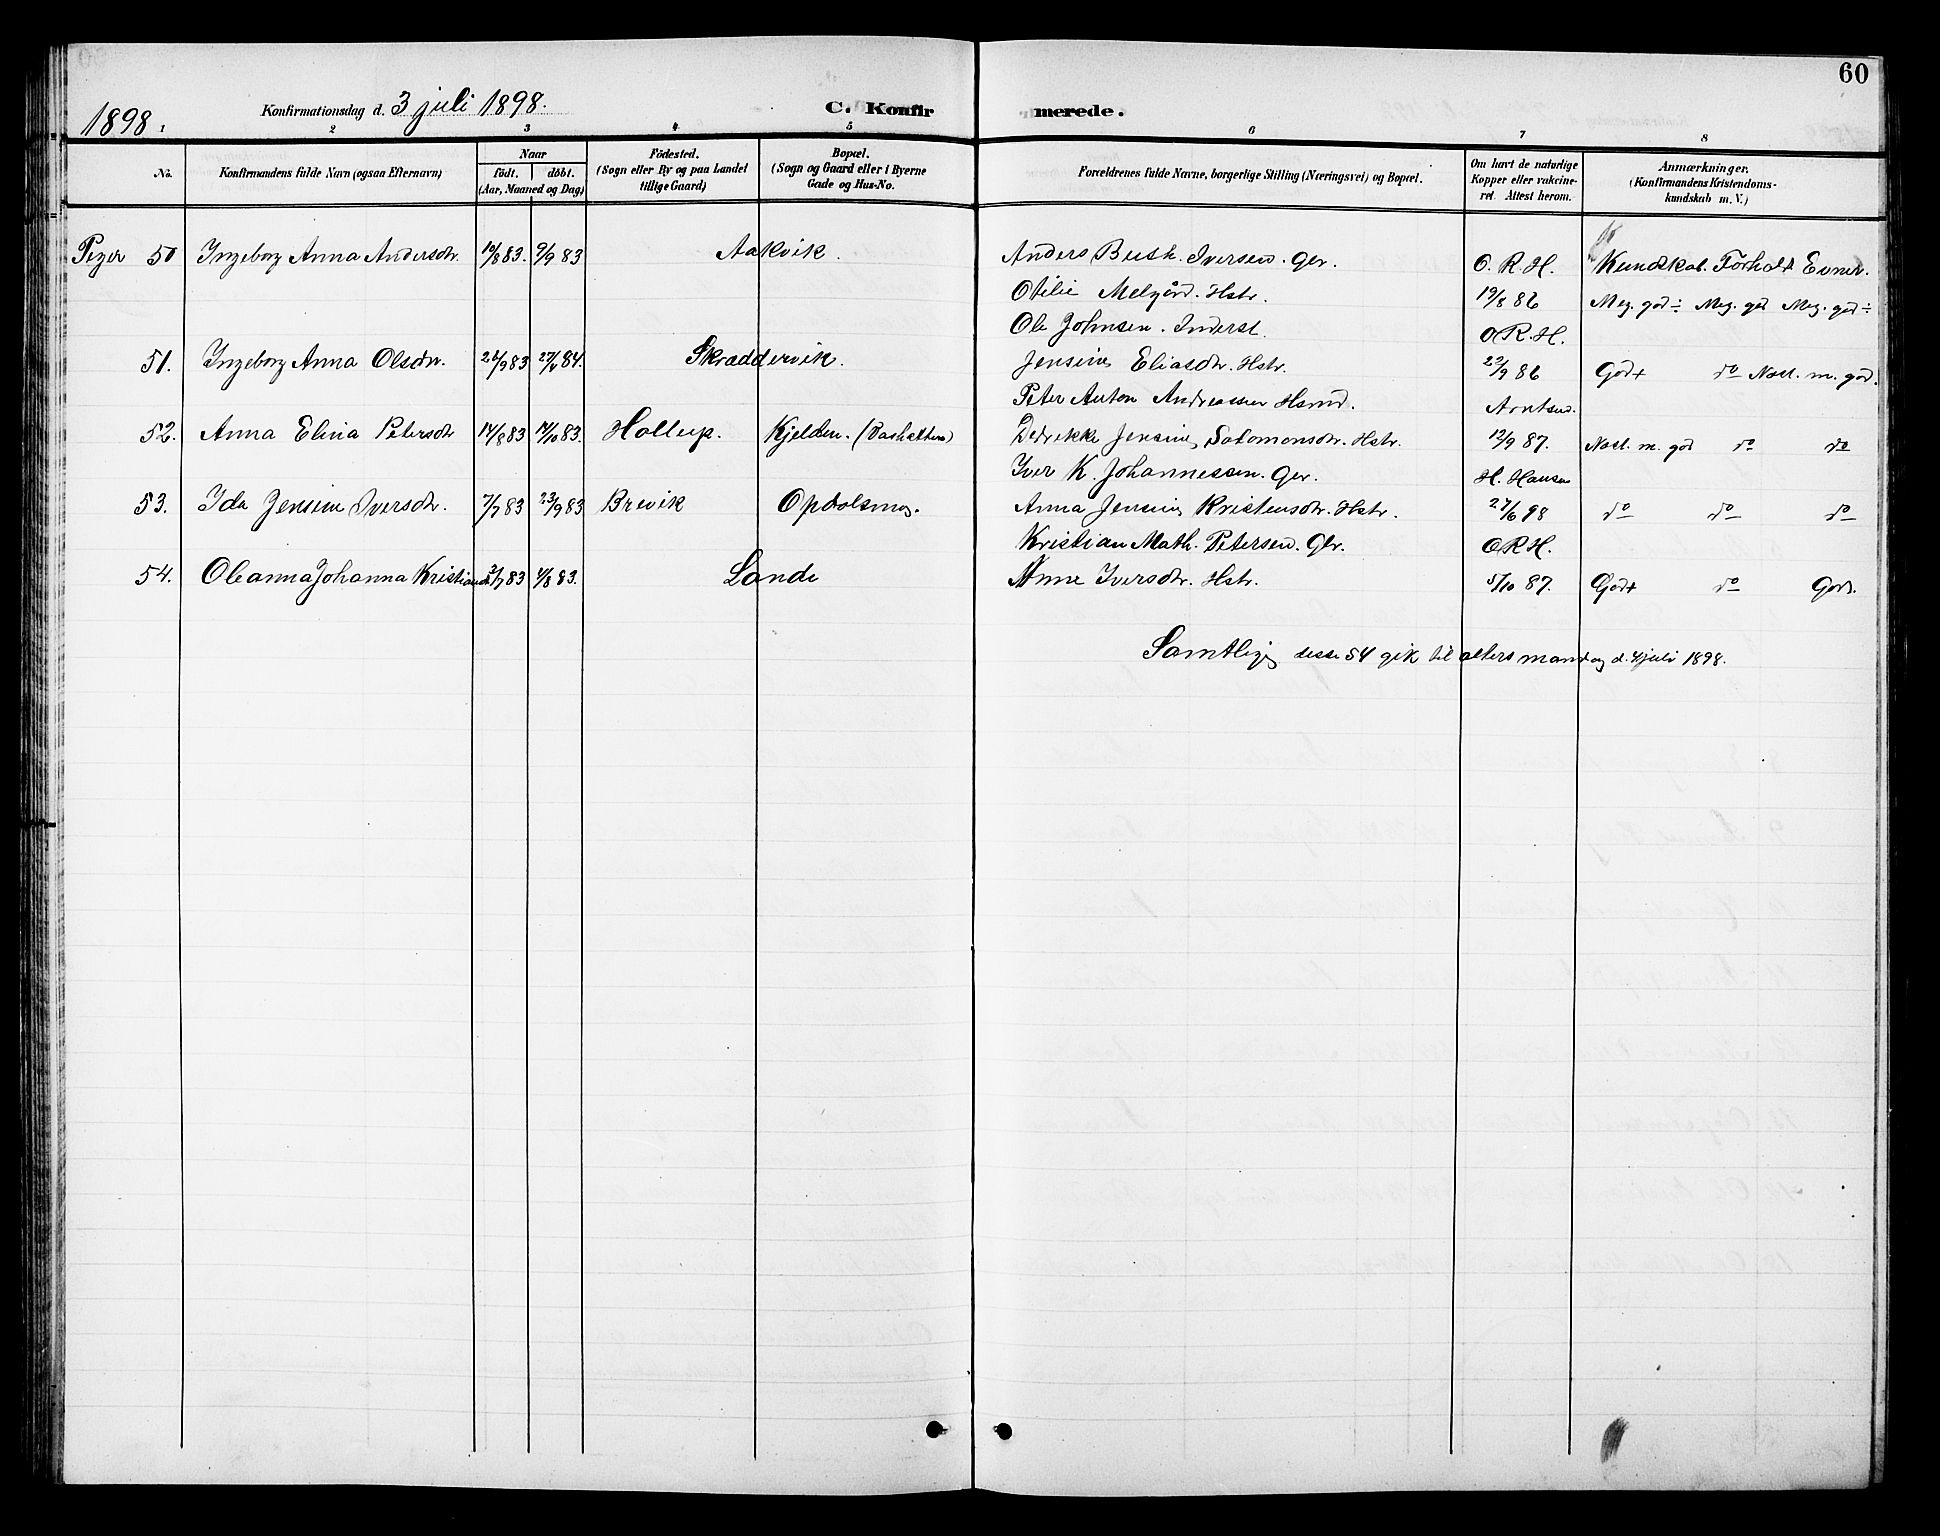 60
1898.
Konfirmationsdag d. 3 juli 1898.
C. Konfirmerede.
1 2 3 4 5 6 7 8
No.
Konfirmandens fulde Navn (ogsaa Efternavn)
Naar
födt. döbt.
(Aar, Maaned og Dag)
Födested.
(Sogn eller By og paa Landet
tillige Gaard)
Bopæl.
(Sogn og Gaard eller i Byerne
Gade og Hus-No.
Forældrenes fulde Navne, borgerlige Stilling (Næringsvei) og Bopæl.
Om havt de naturlige
Kopper eller vakcine-
ret. Attest herom.
Anmærkninger.
(Konfirmandens Kristendoms-
kundskab m. V.)
Piger 50 Ingeborg Anna Andersdtr. 10/8 83. 9/9 83 Aakvik. Anders Iversen. Gbr. O. R. H. Kundskab. Forhold Evner.
Otilie Melgård. Hstr. 19/8 86 Meg. god ÷ Meg. god Meg. god ÷
Ole Johnsen. Inderst. O R. H.
51. Ingeborg Anna Olsdtr. 26/9 83 84. Skræddervik. Jensine Eliasdtr. Hstr. 22/9 86 God+ do Nost. m. god.
Peter Anton Andreassen Hsmd. Arntsen.
52. Anna Elina Petersdtr 14/8 83 14/10 83. Hollup. Kjelden. Jensine Salomonsdtr. Hstr. 12/9 87. Nost. m. god do do
Iver K. Johannessen. Gbr. H. Hansen
53. Ida Jensine Iversdtr. 7/7 83 23/9 83 Brevik Opdolsmo. Anna Jensine Kristensdtr. Hstr. 27/6 98 do do do
Kristian Math. Petersen. Gbr. O R H.
54. Oleanna Johanna Kristiansd. 3/7 83 4/8 83. Lande Anne Iversdtr. Hstr. 5/10 87. God+ do God.
Samtlige disse 54 gik til alters mandag d. 4 juli 1898.